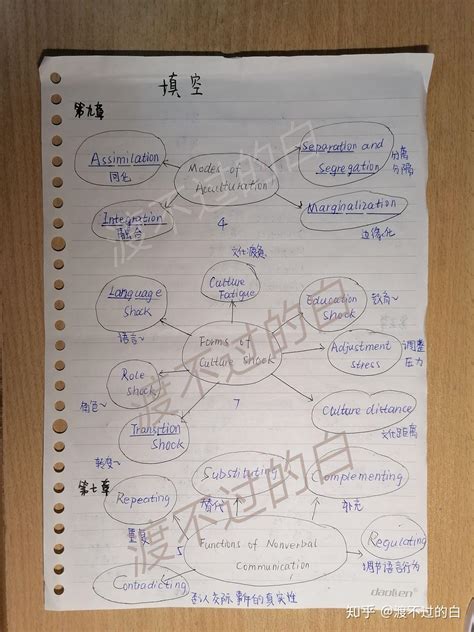 填空
第九章
Assimilation
同化
Modes of
Acculturation
Separation and
Segregation
分隔
Integration
融合
4
Marginalization
边缘化
文化疲惫
Culture
Fatigue
Language
shock
语言~
Education
Shock
教育~
Forms of
Culture Shock
Adjustment
stress
调整
压力
Role
shock
角色~
7
Culture distance
文化距离
Transition
Shock
转变~
第七章
Substituting
替代
Complementing
补充
Repeating
重复
5
Functions of Nonverbal
Communication
Regulating
调节语言行为
Contradicting
否认交际事件的真实性
渡不过的白
渡不过的白
渡不过的白
daolien
知乎 @渡不过的白